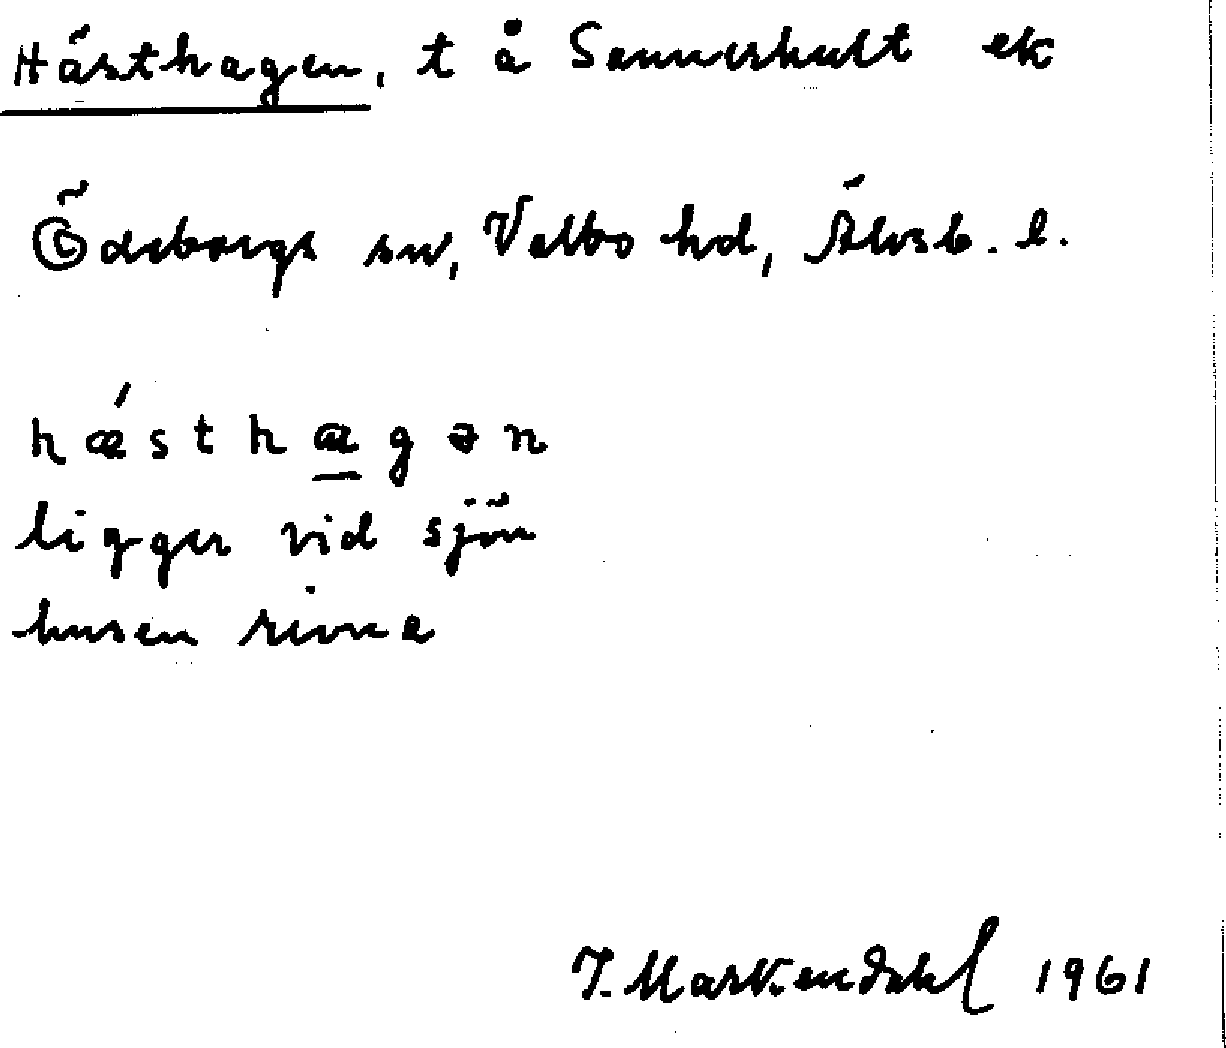 Hästhagen, t å Sannerhult ek
Ödeborgs sn, Valbo hd, Älvsb. l.
hǽsthagən
ligger vid sjön
husen rivna
I. Markendahl 1961